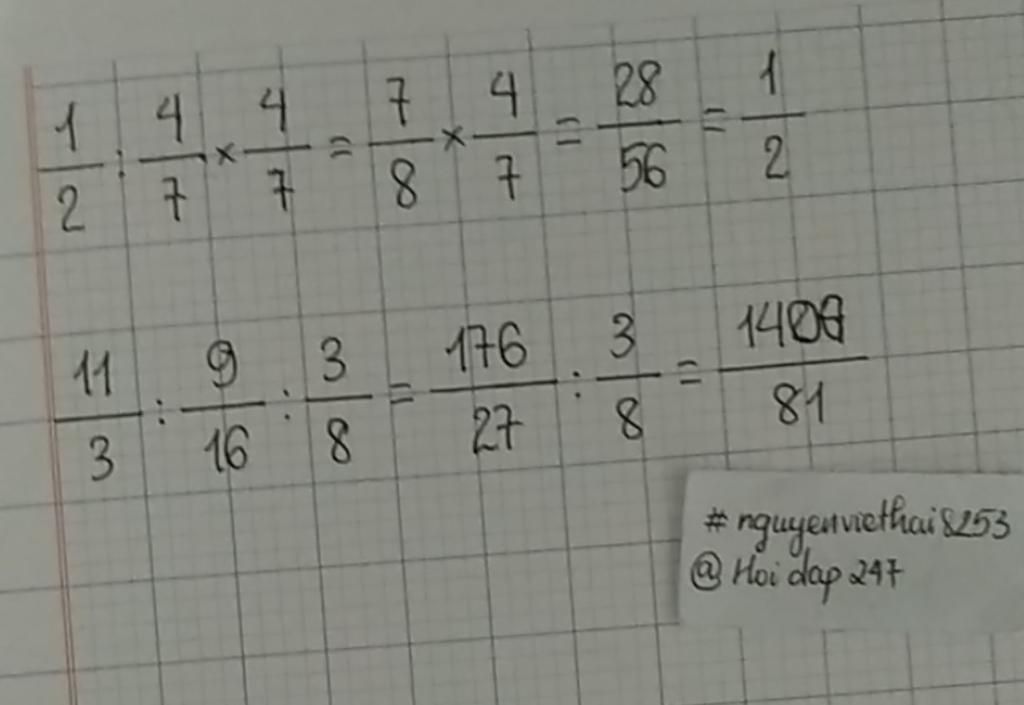 1/2 : 4/7 × 4/7 = 7/8 × 4/7 = 28/56 = 1/2
11/3 : 9/16 : 3/8 = 176/27 : 3/8 = 1408/81
# nguyenviethai8253
@ Hoi dap 247